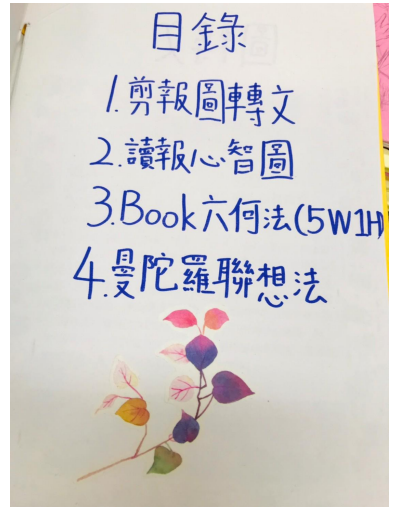 目錄
1.剪報圖轉文
2.讀報心智圖
3.Book六何法(5W1H)
4.曼陀羅聯想法